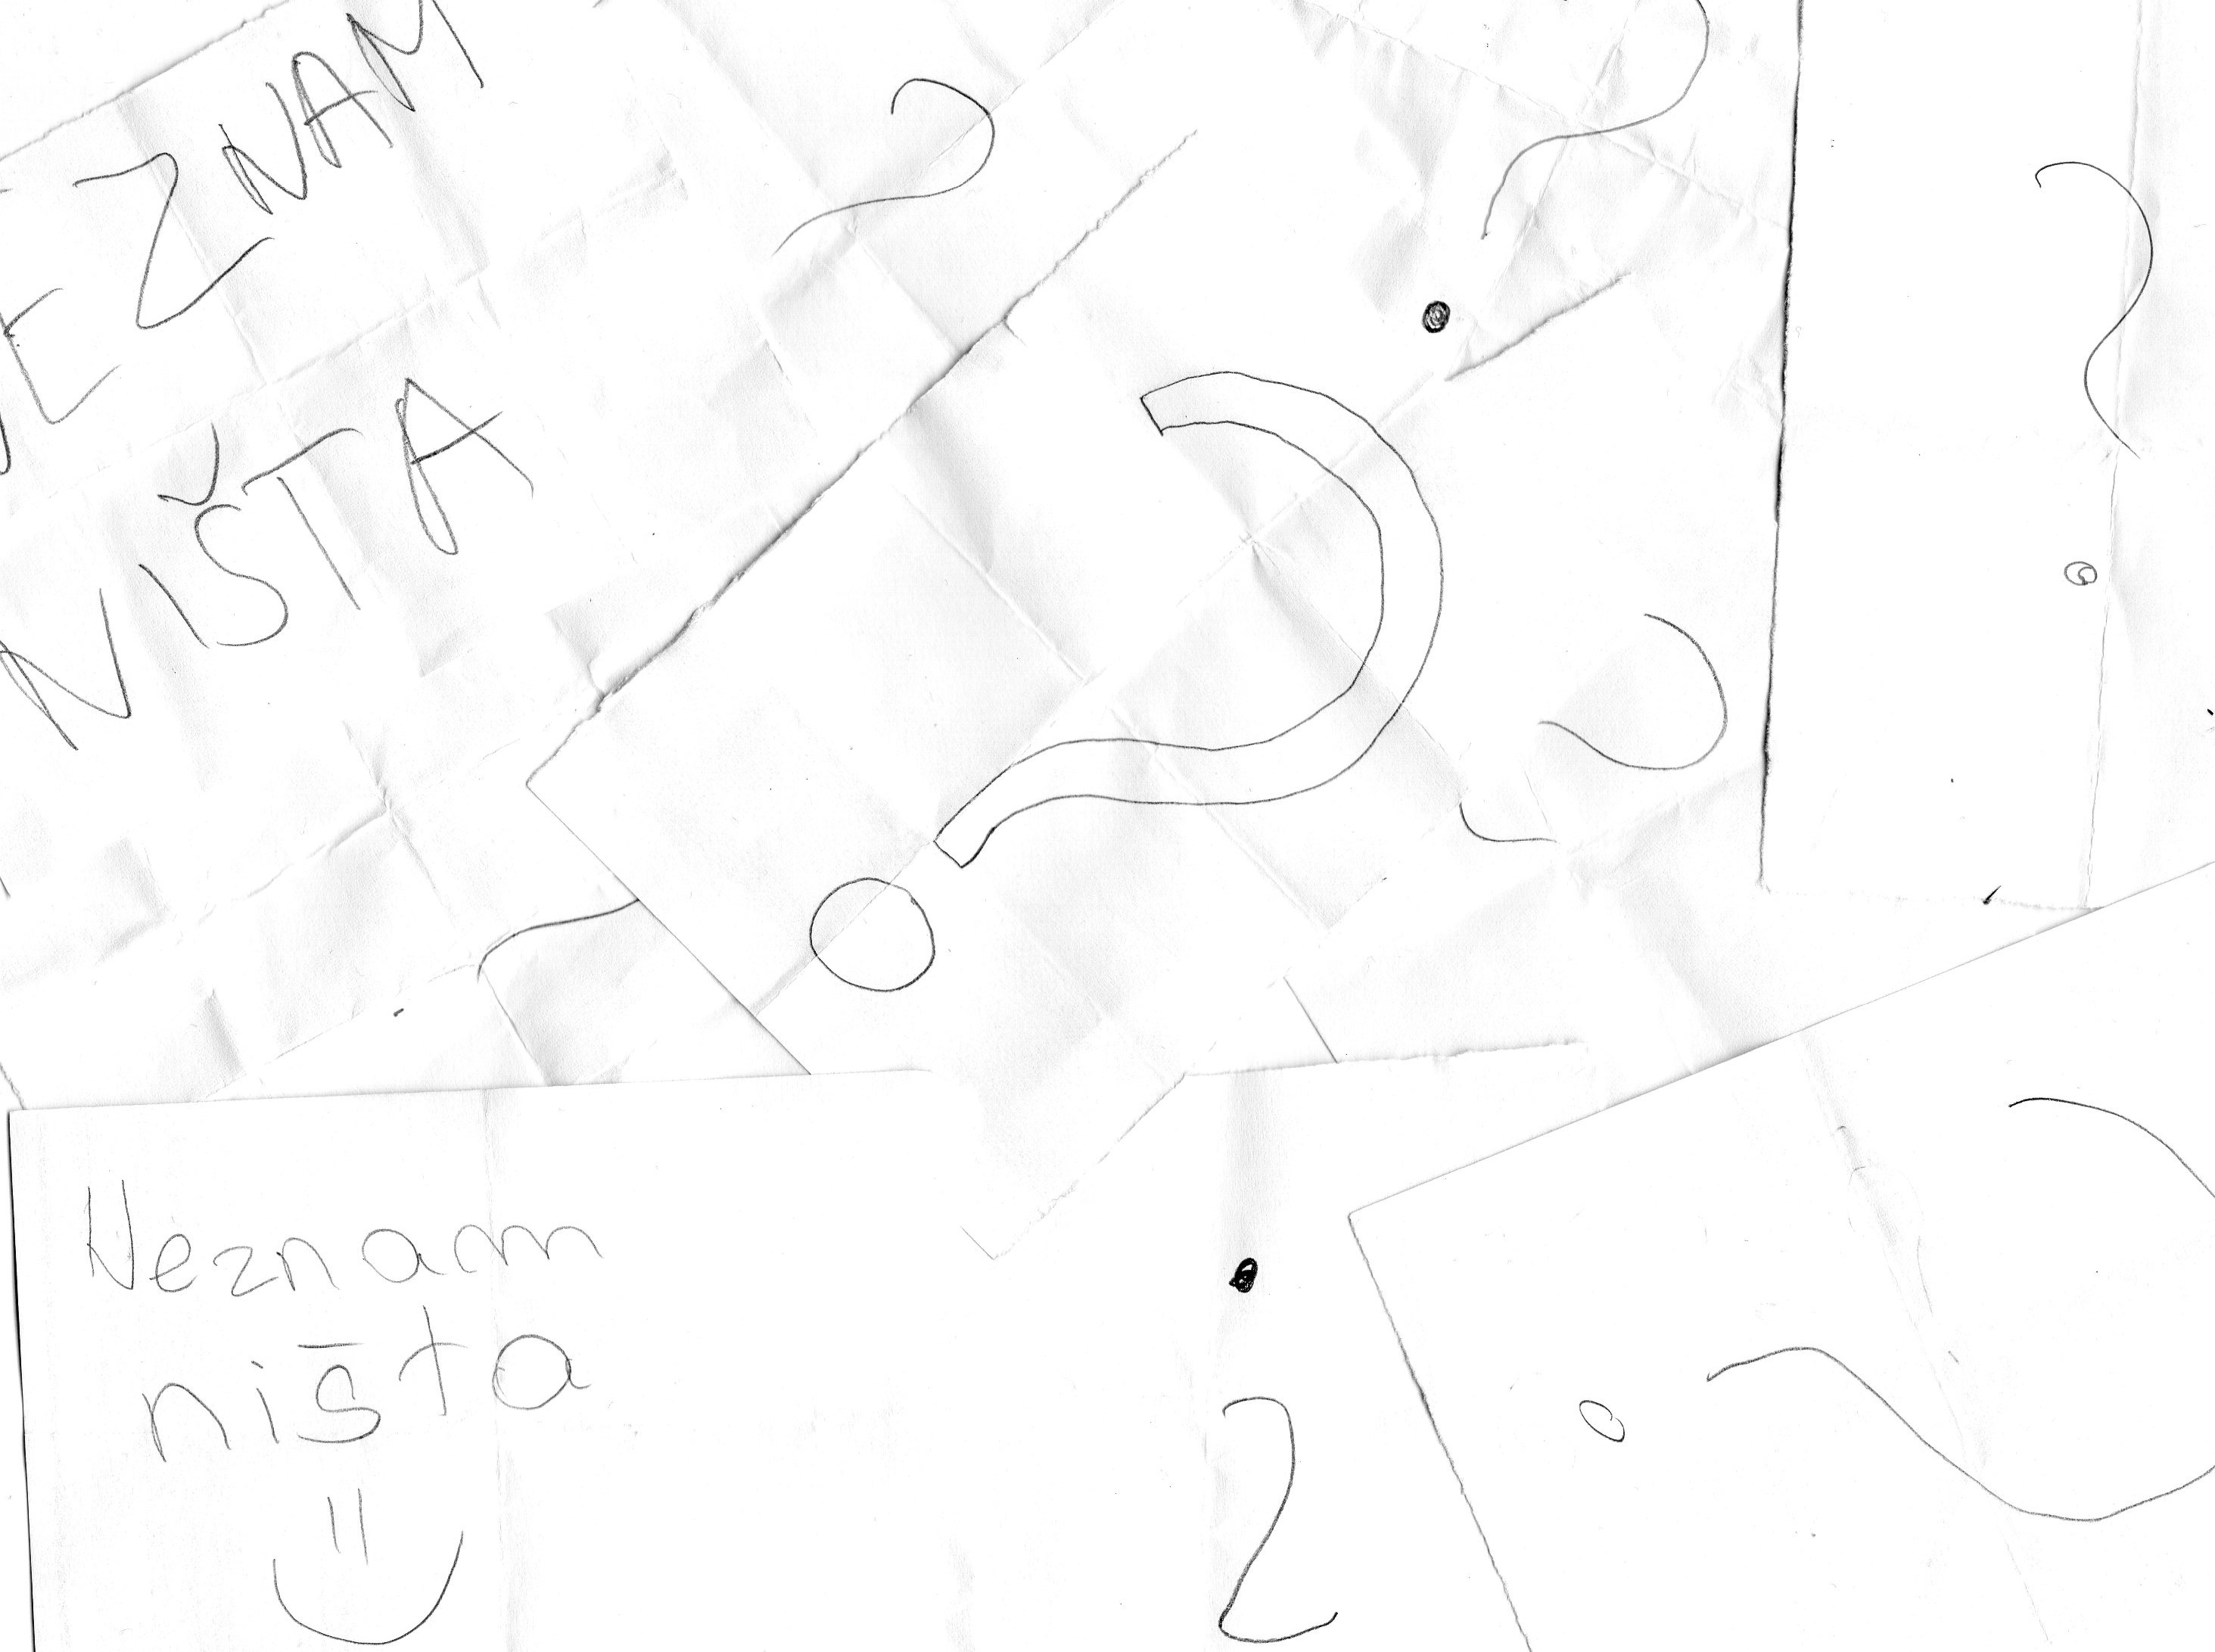 NE ZNAM
NIŠTA
?
?
?
?
?
Neznam
ništa
?
?